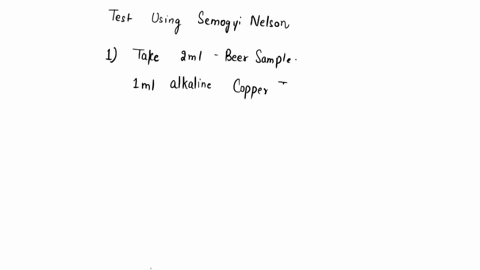 Test Using Semogyi Nelson
1) Take 2ml - Beer Sample.
1ml alkaline Copper